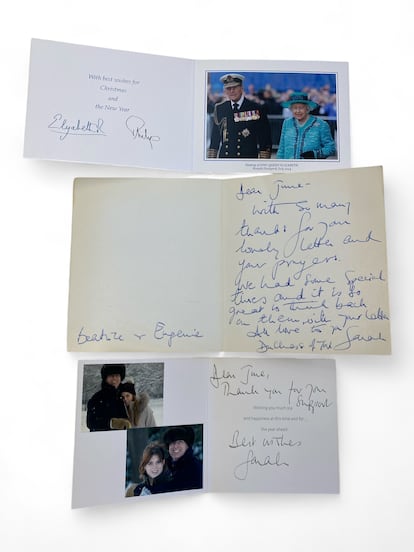 With best wishes for
Christmas
and
the New Year
Elizabeth R Philip
Dear June -
with so many
thanks for you
lovely letter and
your prayers.
We had some special
times and it is so
great to think back
on them, with your letter
love to
Sarah
Duchess of York
Beatrice & Eugenie
Dear June,
Thank you for you
support
Wishing you much joy
and happiness at this time and for
the year ahead
Best wishes
Sarah